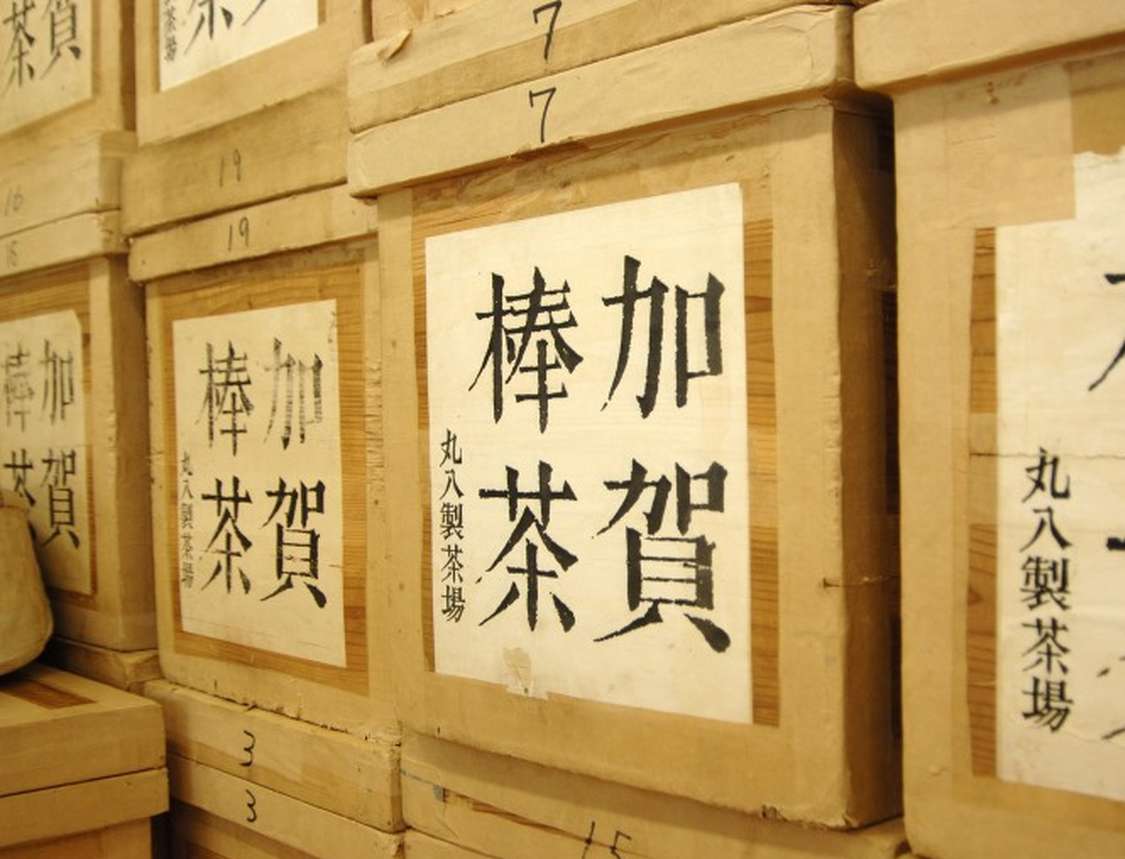 茶
賀
茶
7
7
19
19
16
16
加賀
棒茶
丸八製茶場
加賀
棒茶
丸八製茶場
加賀
棒茶
丸八製茶場
3
3
15